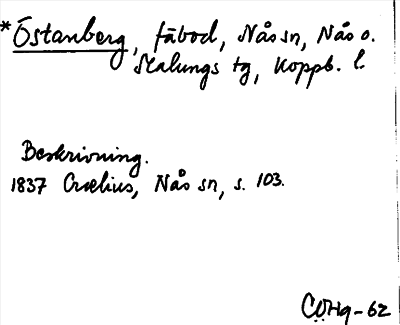 *Östanberg, fäbod, Nås sn, Nås o.
Malungs tg, Koppb. l.
Beskrivning.
1837 Crælius, Nås sn, s. 103.
CÖHq-62